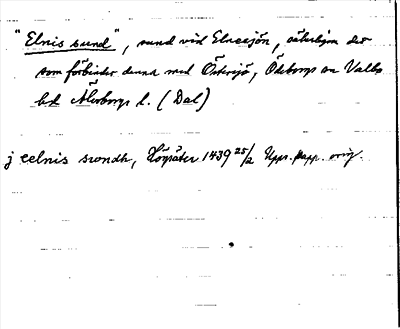 "Elnis sund", sund vid Elnesjön, säterligen det
som förbinder denna med Östersjö, Ödeborgs sn Valbo
hd Älvsborgs l. (Dal)
j eelnis swondh, Högsäter 1439 25/2 Upps. papp. orig.